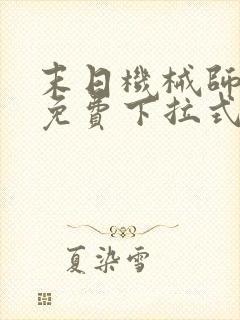 末日機械師
免費下拉式
夏染雪